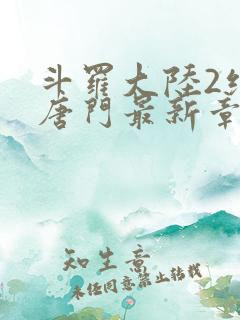 斗羅大陸2絕
唐門最新章
知生意
未經同意禁止轉載